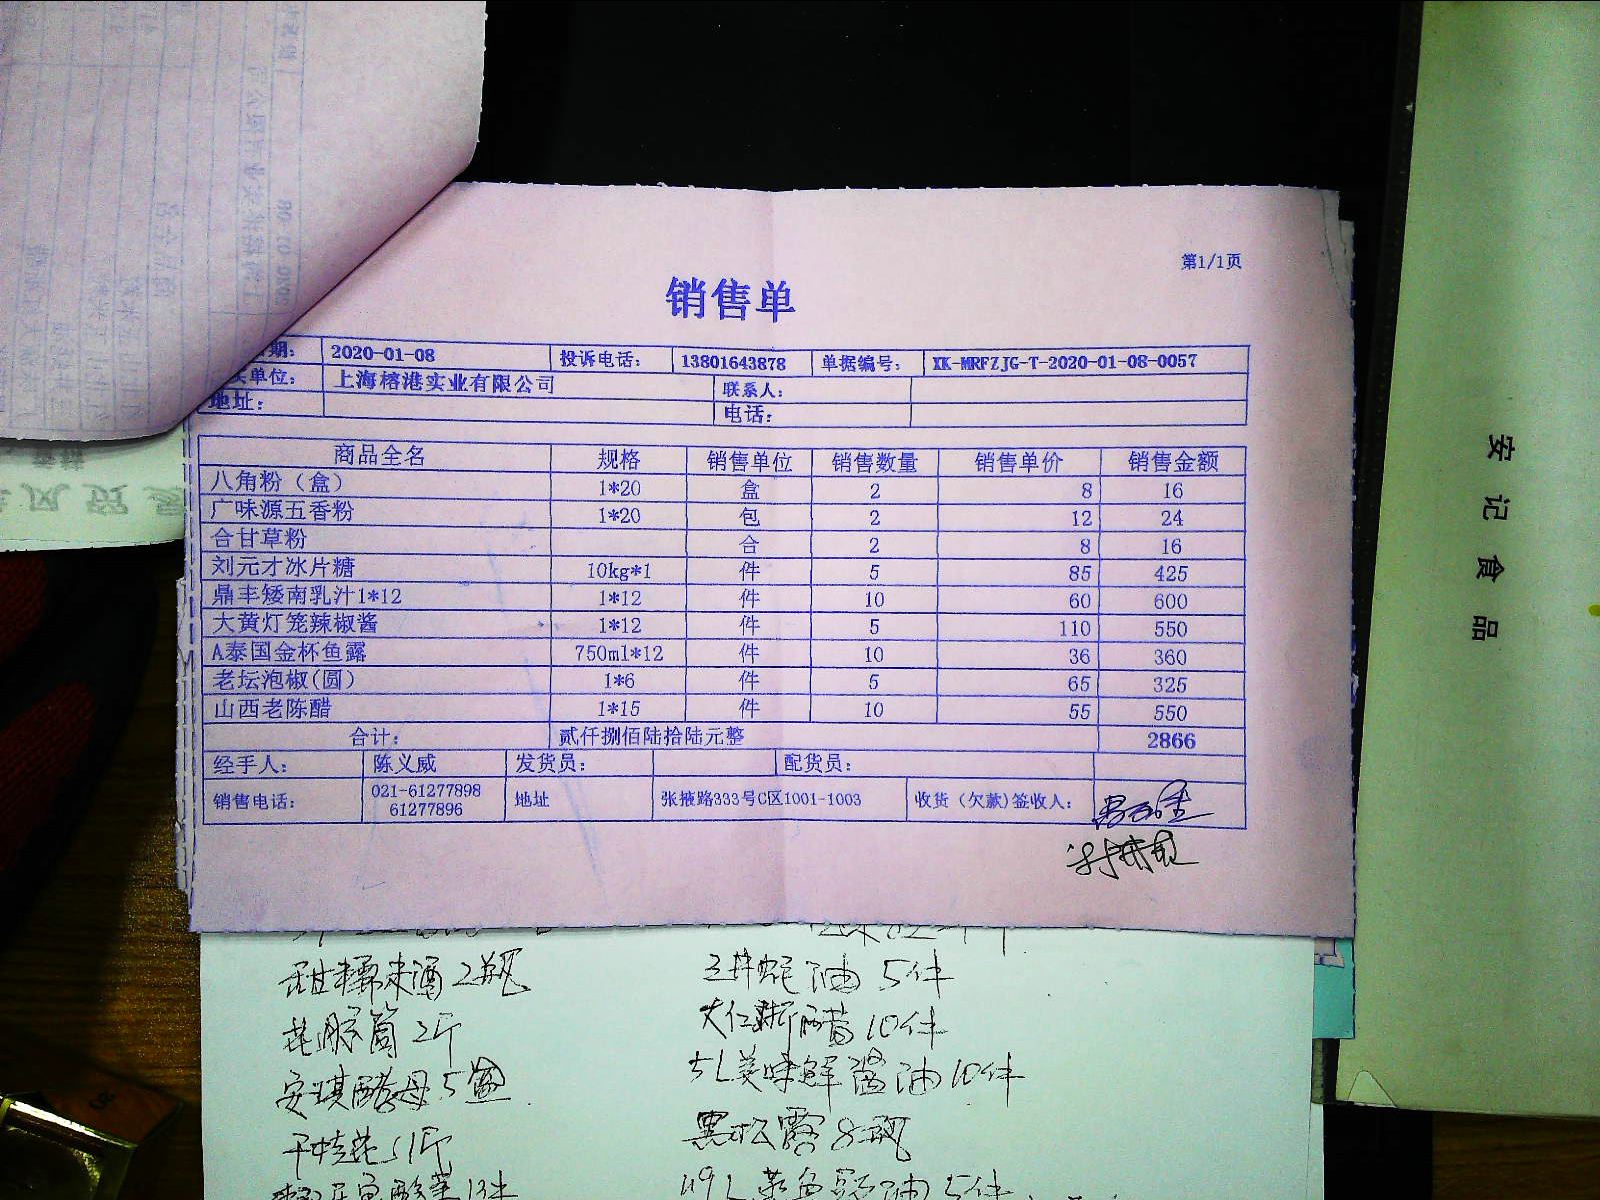 第1/1页
销售单
期： 2020-01-08 投诉电话： 13801643878 单据编号： XK-MRFZJG-T-2020-01-08-0057
单位： 上海榕港实业有限公司 联系人：
地址： 电话：
商品全名 规格 销售单位 销售数量 销售单价 销售金额
八角粉（盒） 1*20 盒 2 8 16
广味源五香粉 1*20 包 2 12 24
合甘草粉 合 2 8 16
刘元才冰片糖 10kg*1 件 5 85 425
鼎丰矮南乳汁1*12 1*12 件 10 60 600
大黄灯笼辣椒酱 1*12 件 5 110 550
A泰国金杯鱼露 750ml*12 件 10 36 360
老坛泡椒(圆) 1*6 件 5 65 325
山西老陈醋 1*15 件 10 55 550
合计： 贰仟捌佰陆拾陆元整 2866
经手人： 陈义威 发货员： 配货员：
销售电话： 021-61277898 61277896 地址 张掖路333号C区1001-1003 收货（欠款)签收人：
安记食品
甜糯米酒 2瓶
5件
2斤
10件
安琪酵母 5盒
5L美味鲜酱油 10件
干桂花 1斤
黑松露 8瓶